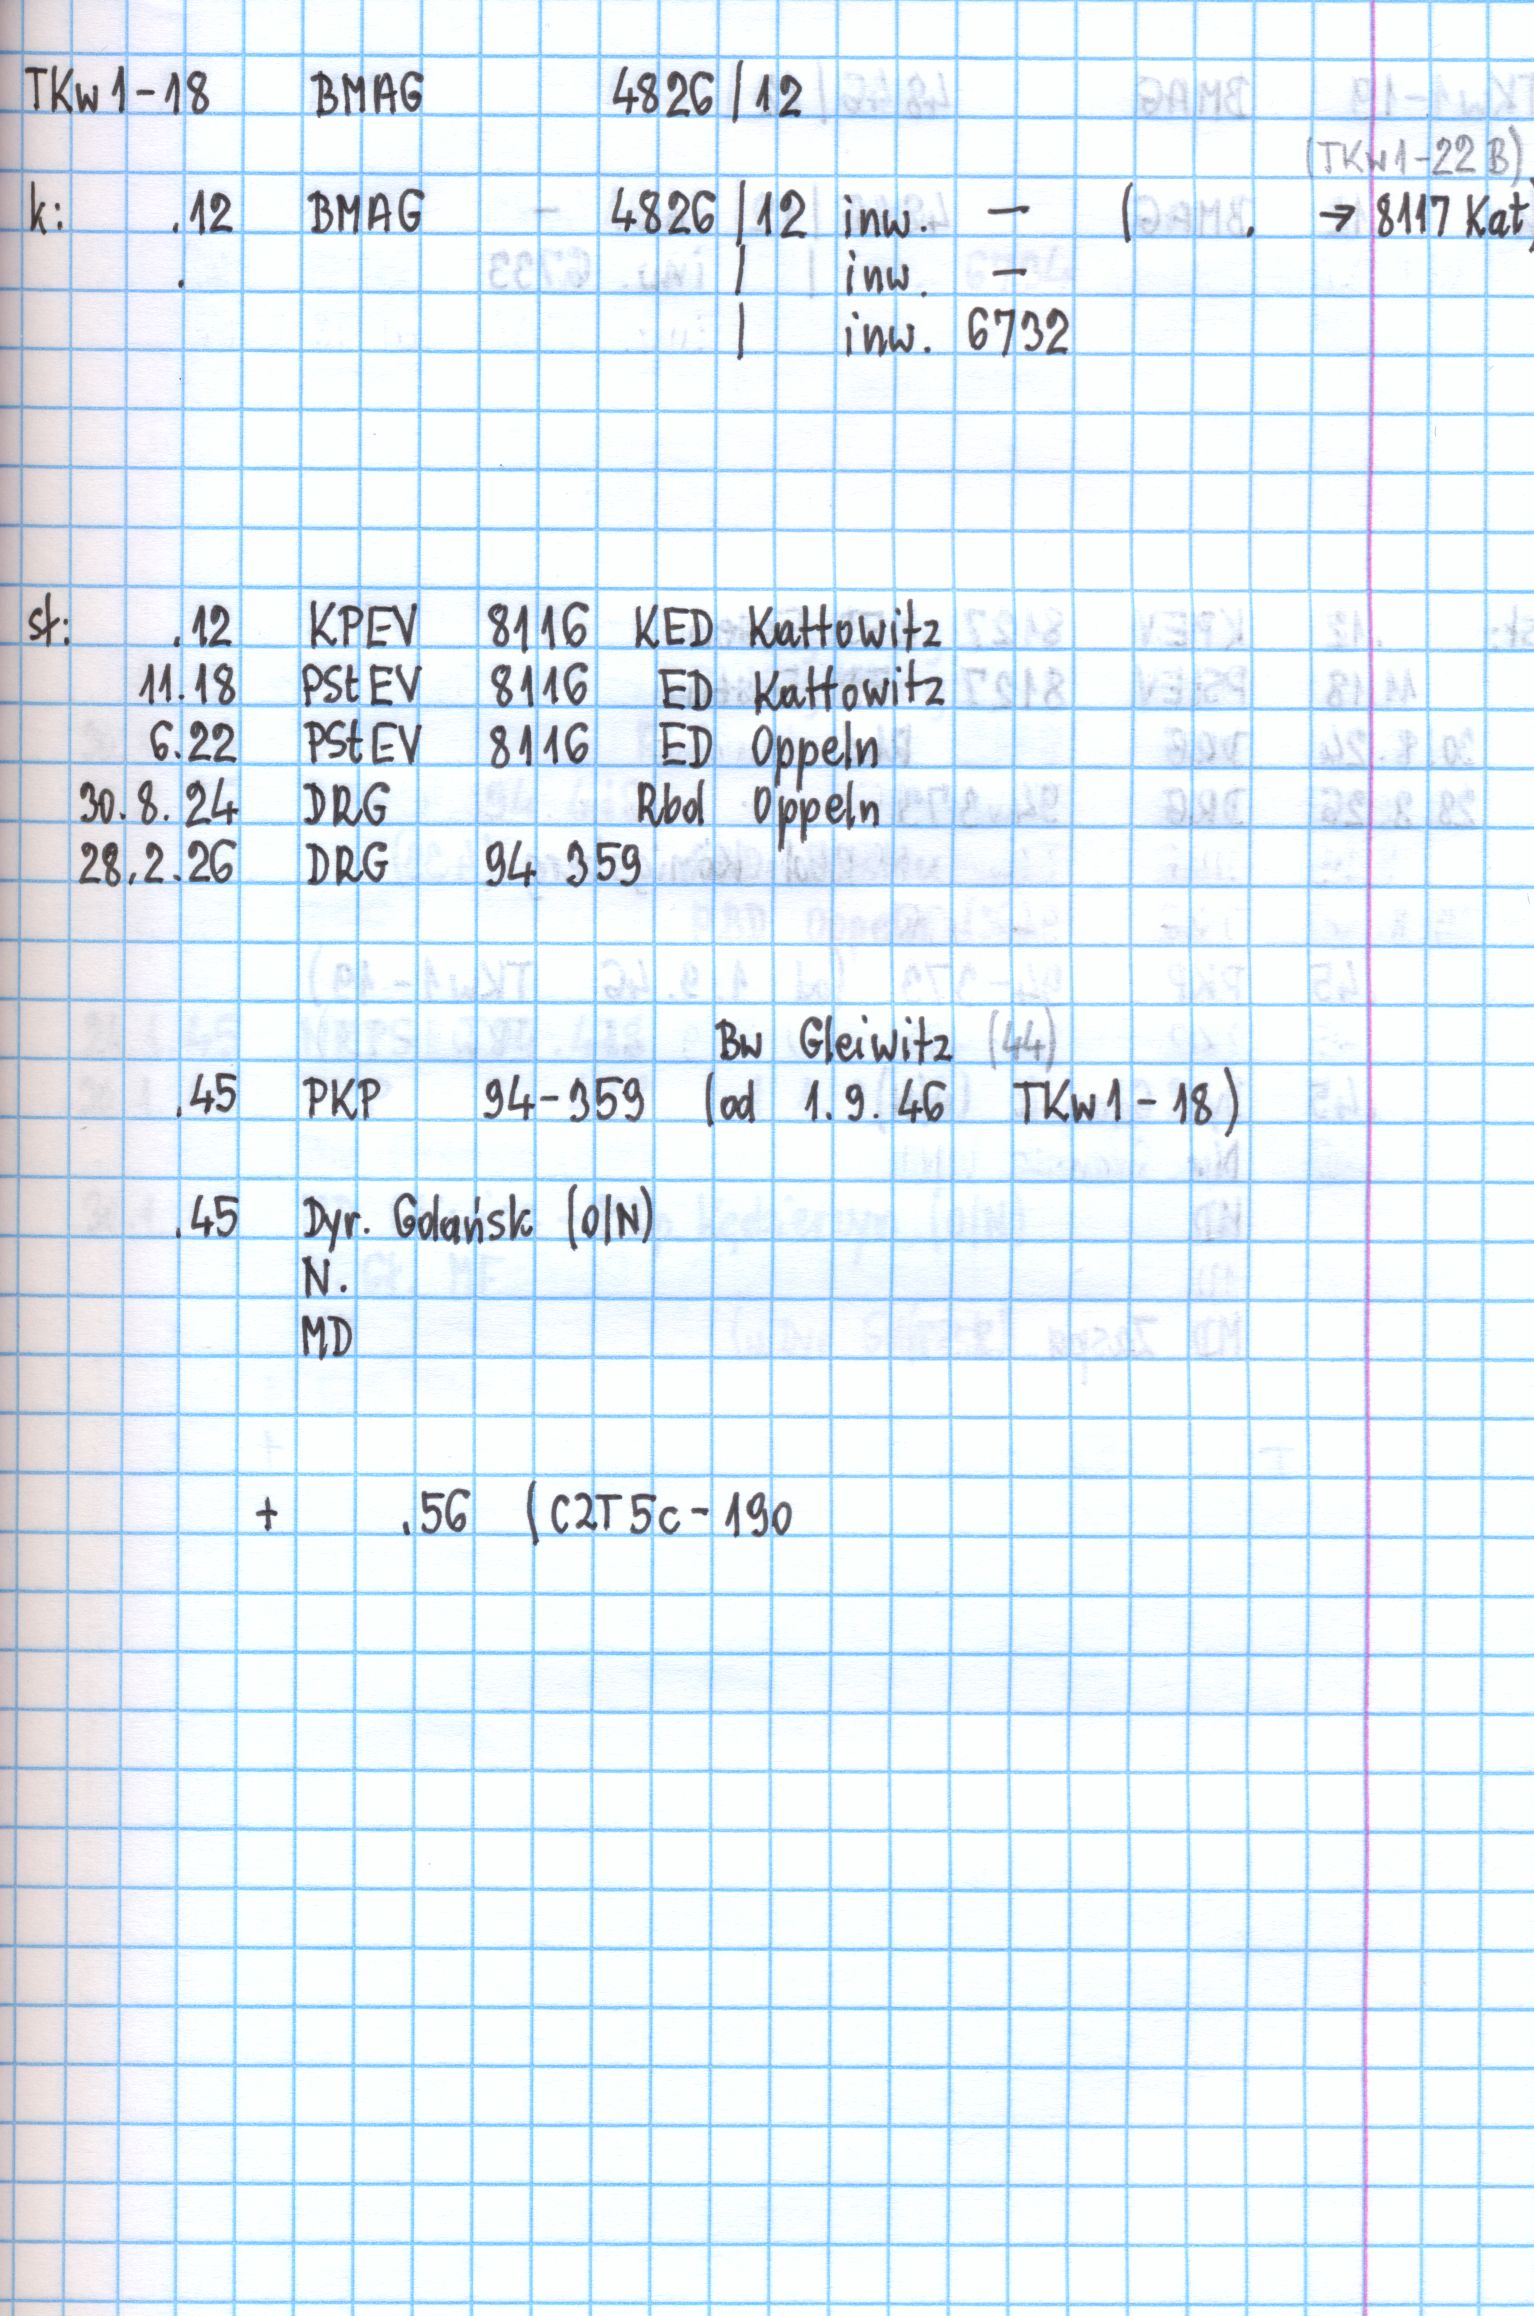 TKw1-18 BMAG 4826/12
(TKw1-22B)
k: .12 BMAG 4826/12 inw. — ( . → 8117 Kat)
. / inw. —
/ inw. 6732
st: .12 KPEV 8116 KED Kattowitz
11.18 PStEV 8116 ED Kattowitz
6.22 PStEV 8116 ED Oppeln
30.8.24 DRG Rbd Oppeln
28.2.26 DRG 94 359
Bw Gleiwitz (44)
.45 PKP 94-359 (od 1.9.46 TKw1-18)
.45 Dyr. Gdańsk (O/N)
N.
MD
+ .56 (C2T5c-190